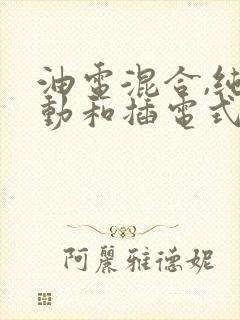 油電混合,純
動和插電式
阿麗雅德妮